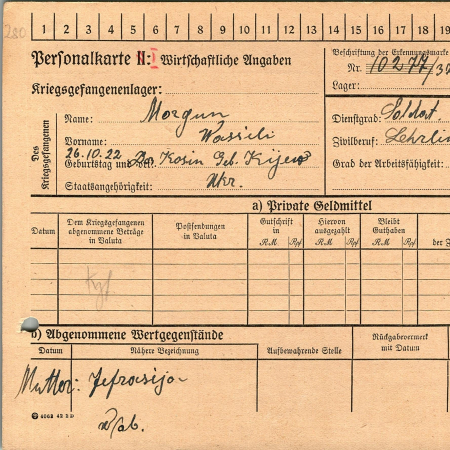 1 2 3 4 5 6 7 8 9 10 11 12 13 14 15 16 17 18 19
280
Personalkarte II: I Wirtschaftliche Angaben
Beschriftung der Erkennungsmarke
Nr. 10277/3
Kriegsgefangenenlager:
Lager:
Des Kriegsgefangenen
Name: Morgun
Vorname: Wassili
26.10.22
Geburtstag und Kosin Geb. Kijew
Staatsangehörigkeit: Ukr.
Dienstgrad: Soldat.
Zivilberuf: Lehrlin
Grad der Arbeitsfähigkeit:
a) Private Geldmittel
Datum
Dem Kriegsgefangenen abgenommene Beträge in Valuta
Postsendungen in Valuta
Gutschrift in RM Rpf
Hiervon ausgezahlt RM Rpf
Bleibt Guthaben RM Rpf
der
b) Abgenommene Wertgegenstände
Datum
Nähere Bezeichnung
Aufbewahrende Stelle
Rückgabevermerk mit Datum
Mutter: Jefrosija
4068 43 2D